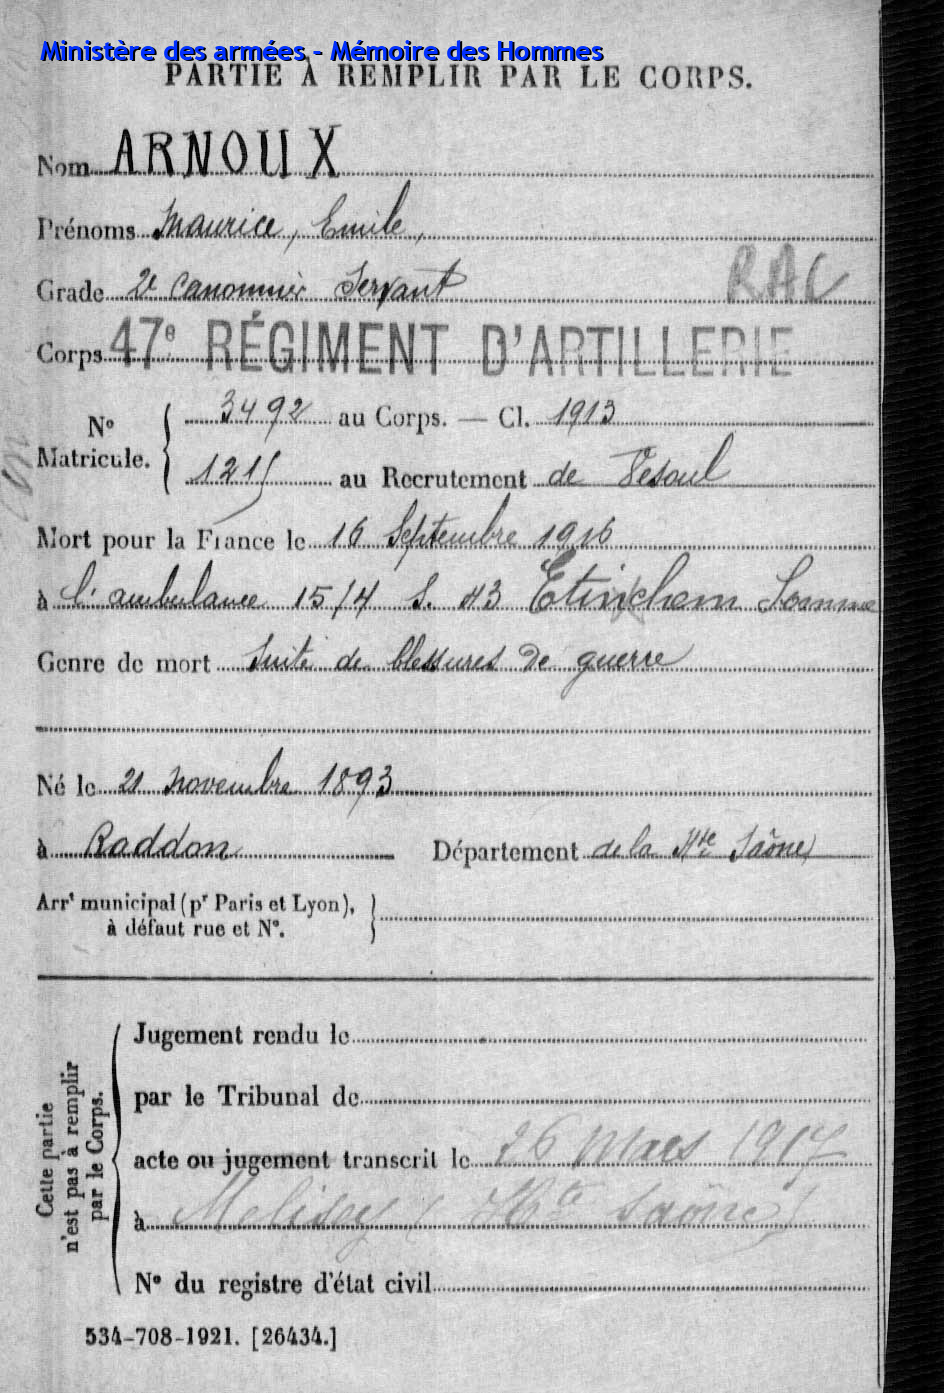 Ministère des armées - Mémoire des Hommes
PARTIE À REMPLIR PAR LE CORPS.
Nom ARNOUX
Prénoms Maurice, Emile,
Grade 2e Canonnier Servant RAC
Corps 47e RÉGIMENT D'ARTILLERIE
N° Matricule. 3492 au Corps. — Cl. 1913
1215 au Recrutement de Vesoul
Mort pour la France le 16 Septembre 1916
à l'ambulance 15/4 S. 43 Etinehem Somme
Genre de mort Suite de blessures de guerre
Né le 21 novembre 1893
à Raddon Département de la Hte Saône
Arrt municipal (pr Paris et Lyon),
à défaut rue et N°.
Cette partie
n'est pas à remplir
par le Corps.
Jugement rendu le
par le Tribunal de
acte ou jugement transcrit le 26 Mars 1917
à Melisey (Hte Saône)
N° du registre d'état civil
534-708-1921. [26434.]